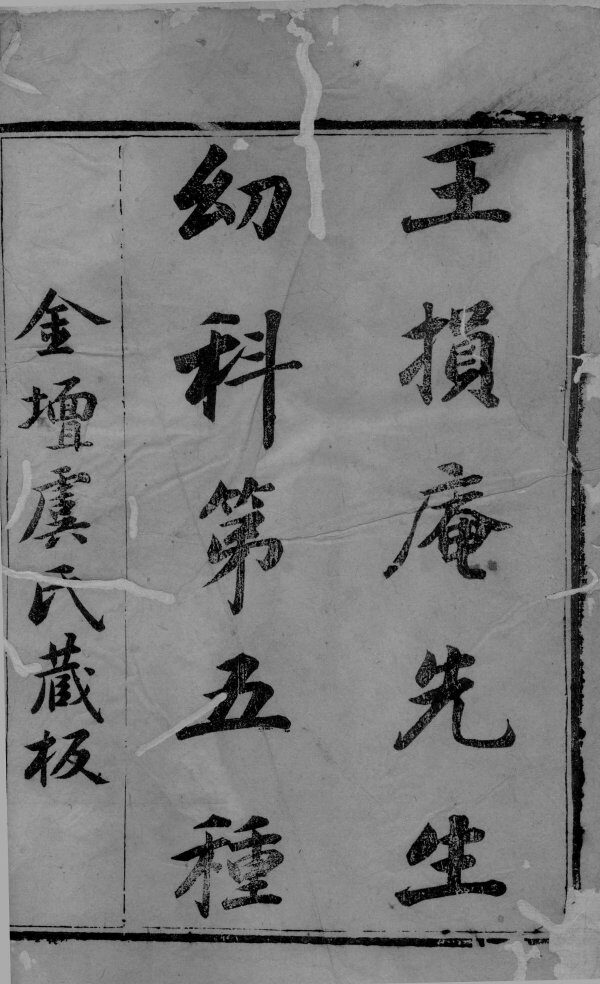 王損庵先生
幼科第五種
金壇虞氏蔵板